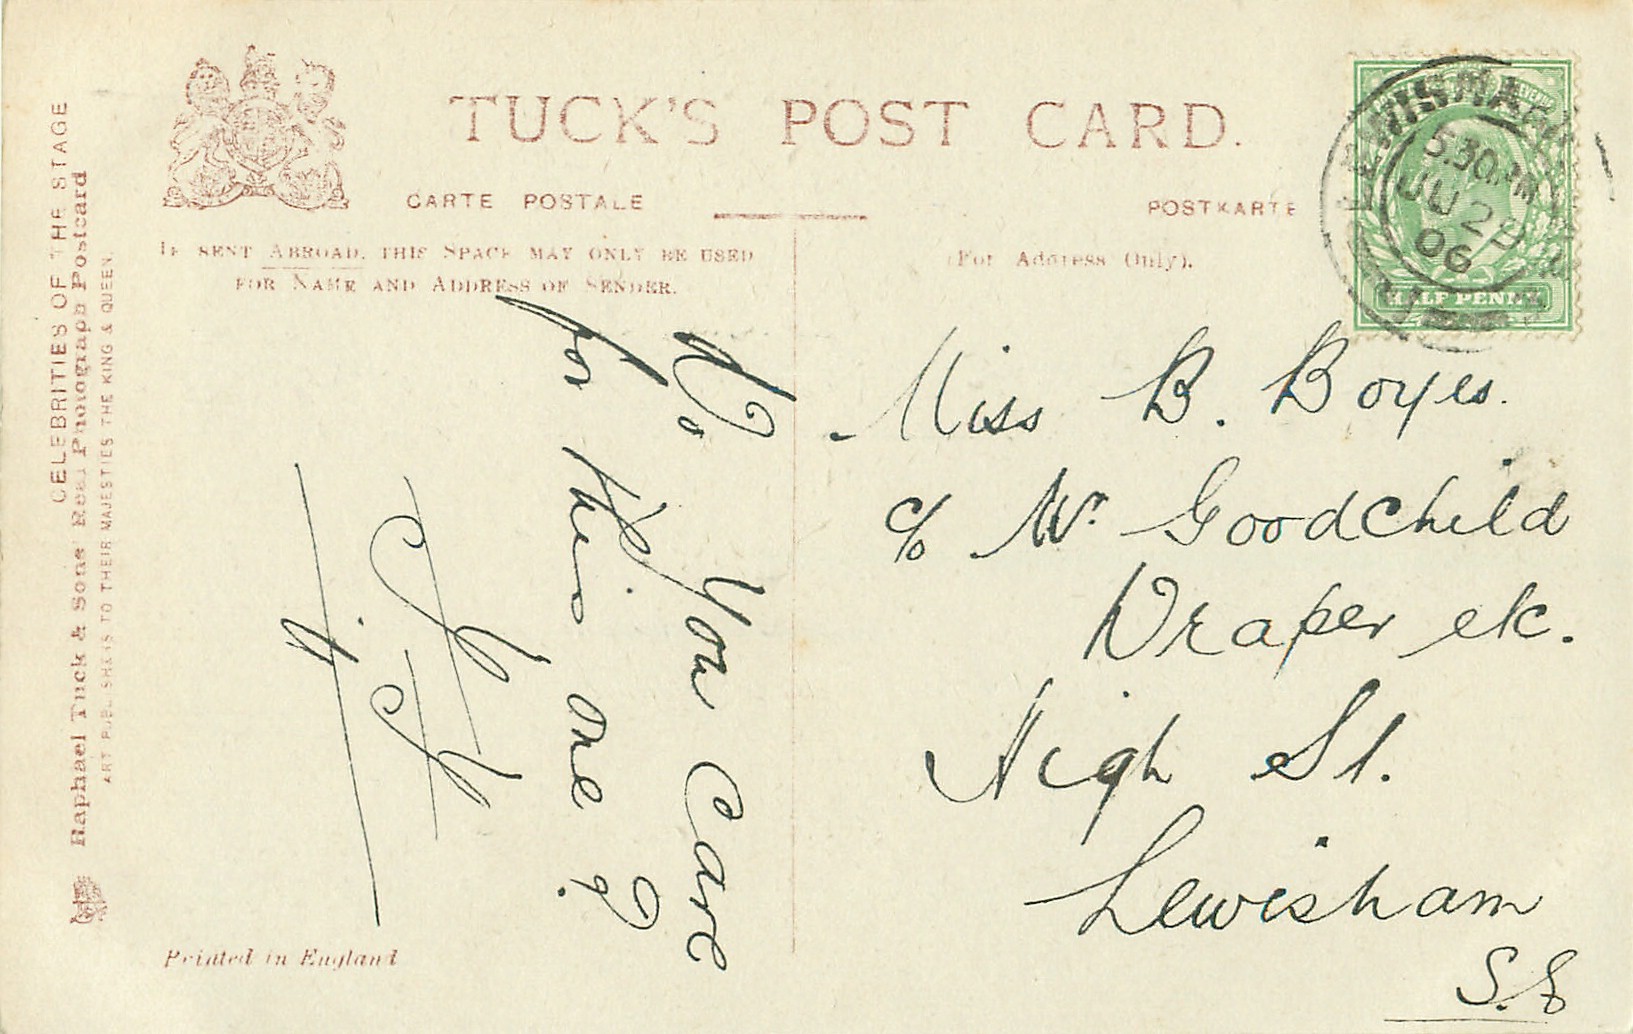 TUCK'S POST CARD.
CARTE POSTALE
POSTKARTE
IF SENT ABROAD, THIS SPACE MAY ONLY BE USED
FOR NAME AND ADDRESS OF SENDER.
(For Address Only).
CELEBRITIES OF THE STAGE
Raphael Tuck & Sons' Real Photograph Postcard
ART PUBLISHERS TO THEIR MAJESTIES THE KING & QUEEN.
Printed in England
Do You Care
for this one?
LEWISHAM
5.30PM
06
HALF PENNY
Miss B. Boyes.
c/o Mr Goodchild
Draper etc.
High St.
Lewisham
S.E